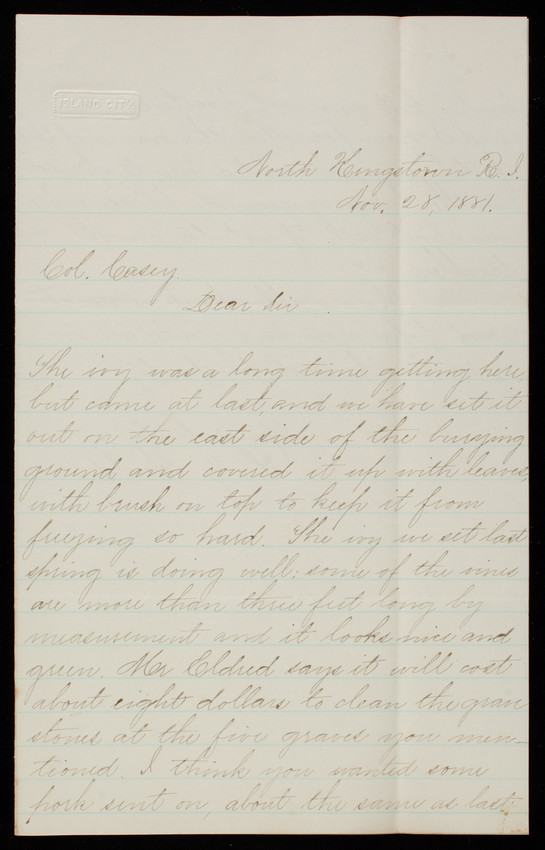 ISLAND CITY
North Kingstown R. I.
Nov. 28, 1881.
Col. Casey
Dear Sir.
The ivy was a long time getting here
but came at last, and we have set it
out on the east side of the burying
ground and covered it up with leaves,
with brush on top to keep it from
freezing so hard. The ivy we set last
spring is doing well: some of the vines
are more than three feet long by
measurement and it looks nice and
green. Mr Eldred says it will cost
about eight dollars to clean the grave
stones at the five graves you men-
tioned. I think you wanted some
pork sent on, about the same as last